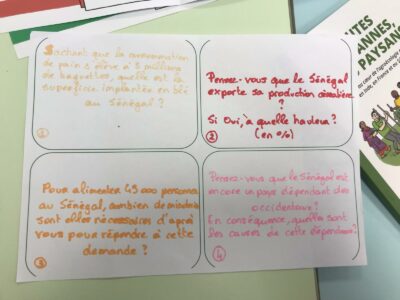 Sachant que la consommation
de pains s'élève à 5 millions
de baguettes, quelle est la
superficie implantée en blé
au Sénégal ?
1
Pensez-vous que le Sénégal
exporte sa production céréalière
?
Si Oui, à quelle hauteur ?
(en %)
2
Pour alimenter 45 000 personnes
au Sénégal, combien de
sont elles nécessaires d'après
vous pour répondre à cette
demande ?
3
Pensez-vous que le Sénégal est
encore un pays dépendant des
occidentaux ?
En conséquence, quelles sont
les causes de cette dépendance ?
4
PAYSANS